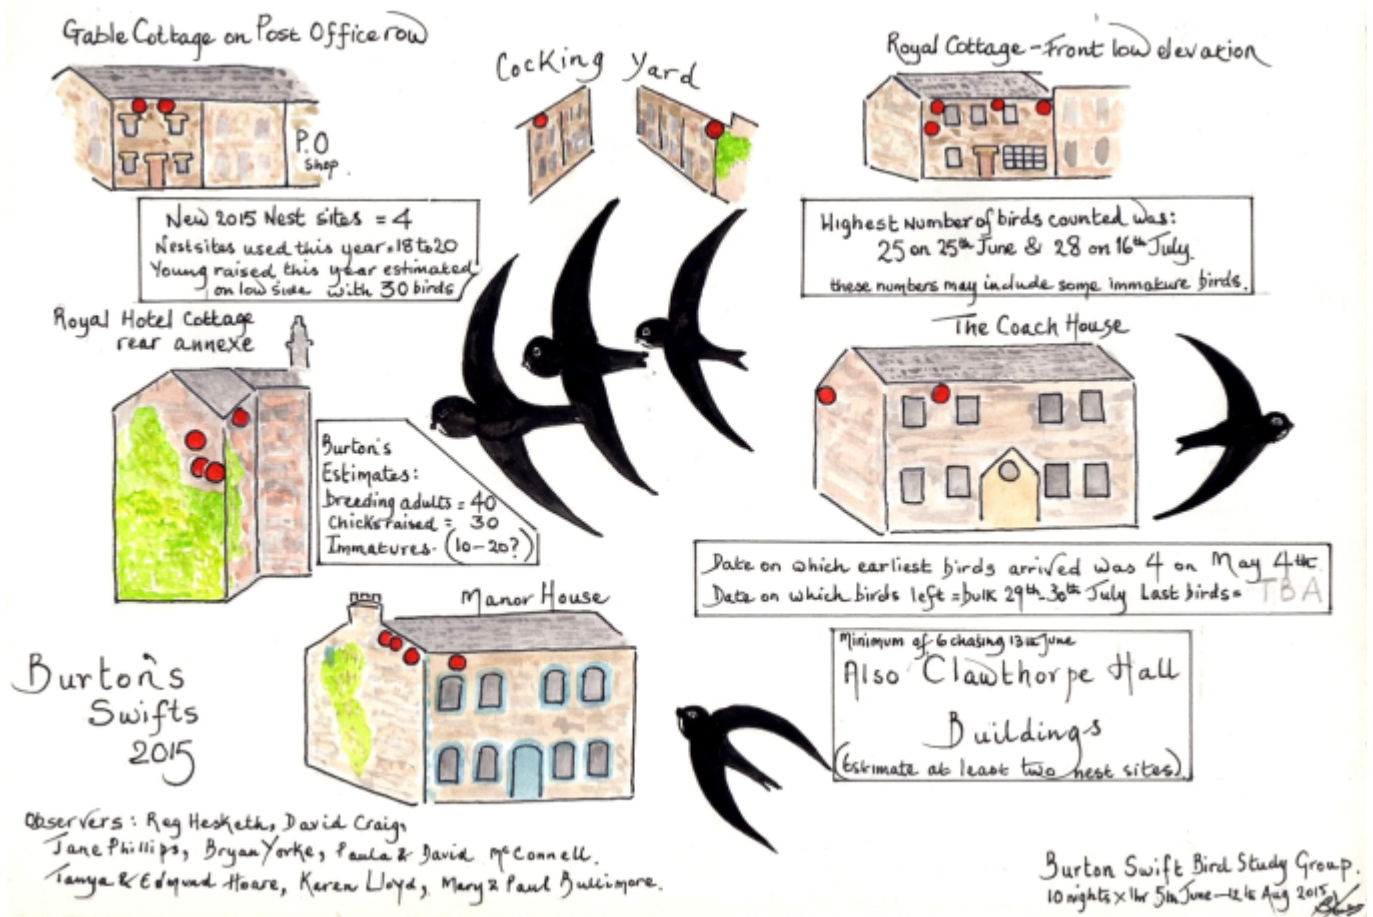 Gable Cottage on Post Office row
P.O
Shop.
Cocking Yard
Royal Cottage - Front low elevation
New 2015 Nest sites = 4
Nestsites used this year = 18 to 20
Young raised this year estimated
on low side with 30 birds
Highest Number of birds counted was:
25 on 25th June & 28 on 16th July.
these numbers may include some immature birds.
Royal Hotel Cottage
rear annexe
The Coach House
Burton's
Estimates:
breeding adults = 40
Chicks raised = 30
Immatures. (10-20?)
Date on which earliest birds arrived was 4 on May 4th.
Date on which birds left = bulk 29th - 30th July Last birds = TBA
Manor House
Minimum of 6 chasing 13th June
Also Clawthorpe Hall
Buildings
(Estimate at least two nest sites).
Burton's
Swifts
2015
Observers: Reg Hesketh, David Craig,
Jane Phillips, Bryan Yorke, Paula & David McConnell.
Tanya & Edmund Hoare, Karen Lloyd, Mary & Paul Bullimore.
Burton Swift Bird Study Group.
10 nights x 1hr 5th June - 12th Aug 2015